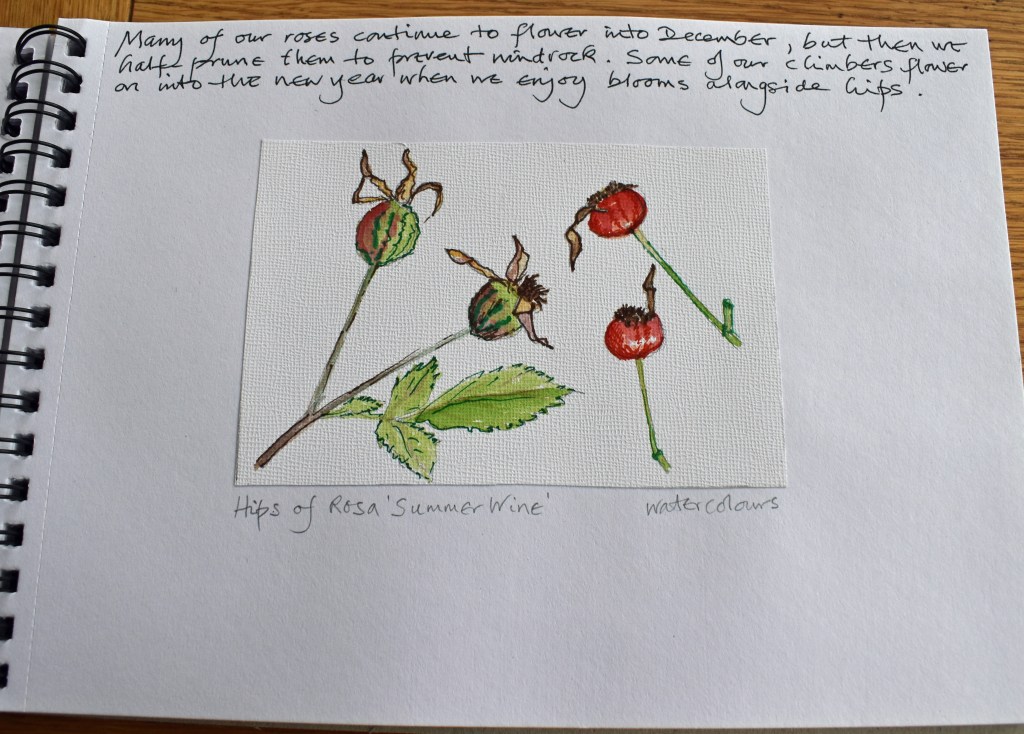 Many of our roses continue to flower into December, but then we
half-prune them to prevent windrock. Some of our climbers flower
on into the new year when we enjoy blooms alongside hips.
Hips of Rosa 'Summer Wine'
watercolours